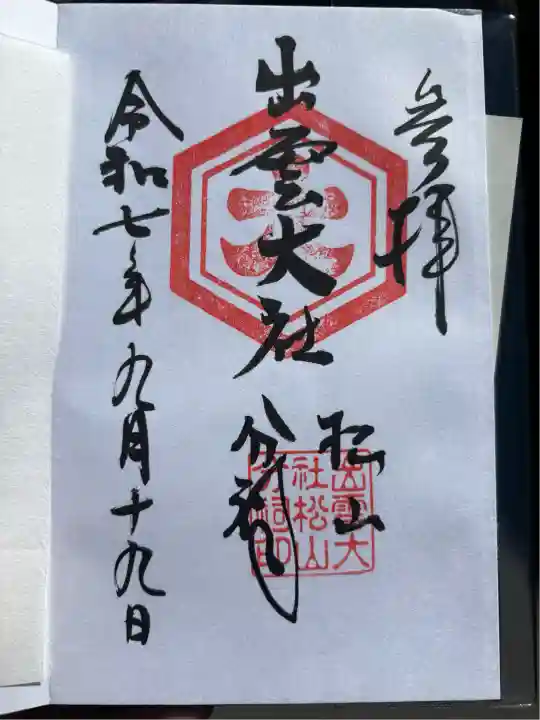 参拝
出雲大社
松山
分祠
令和七年九月十九日
出雲大
社松山
分祠印